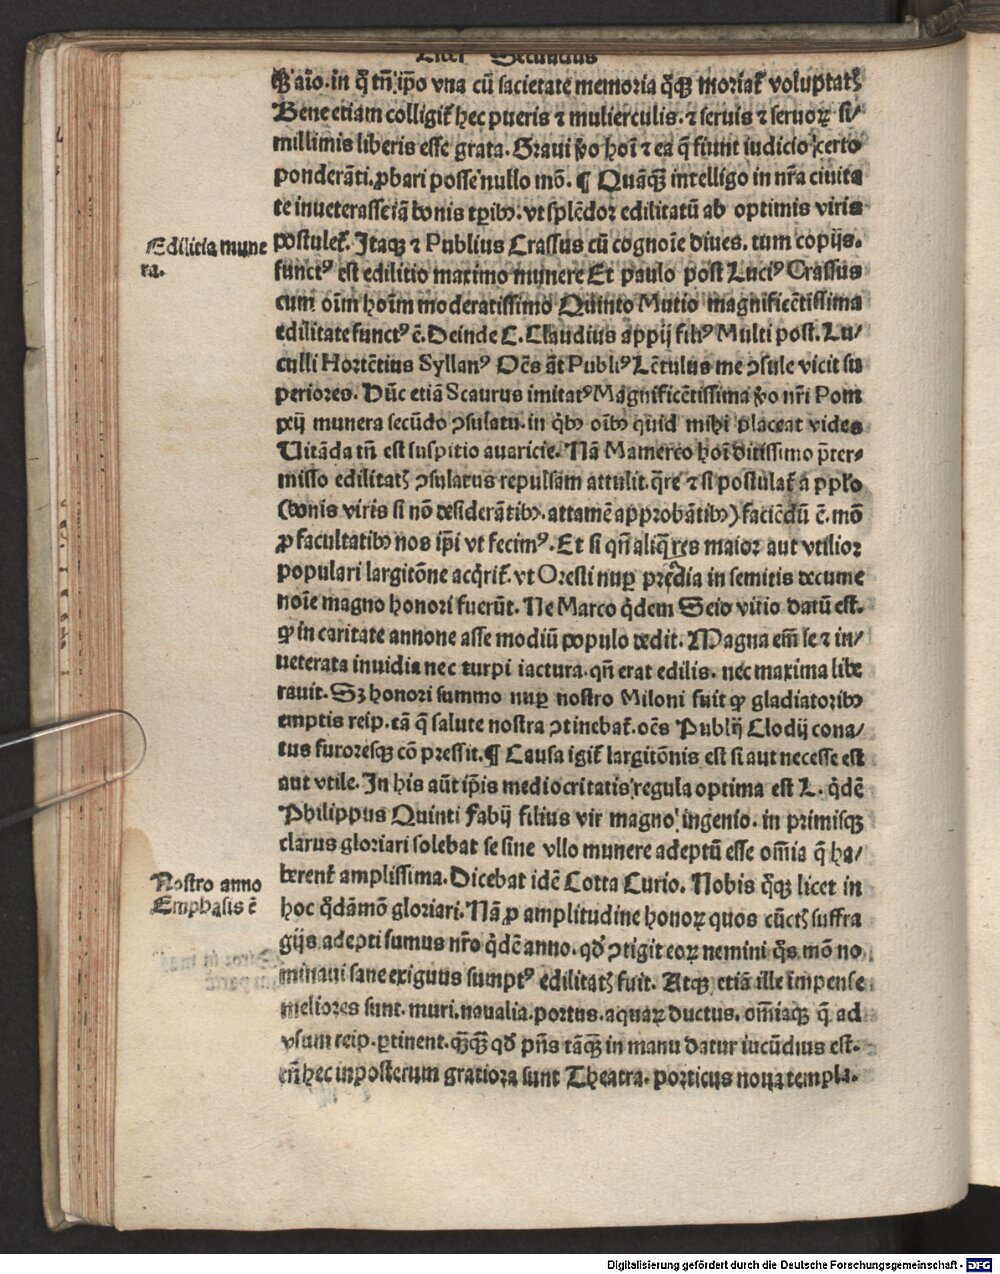 Liber Secundus
Qꝫ aīo. in q̄ tn̄ ip̄o vna cū sacietate memoria q̄qꝫ moriat᷑ voluptatꝭ
Bene etiam colligit᷑ hec pueris ⁊ mulierculis. ⁊ seruis ⁊ seruoꝝ si/
millimis liberis esse grata. Graui ꝟo hoī ⁊ ea q̄ fiunt iudicio certo
ponderāti. ꝓbari posse nullo mō. ¶ Quāqꝫ intelligo in nr̄a ciuita
te inueterasse iā bonis tꝑibꝰ. vt splēdor edilitatū ab optimis viris
Edilitia mune
ra.
postulet᷑. Itaqꝫ ⁊ Publius Crassus cū cognoīe diues. tum copijs.
functꝰ est edilitio maximo munere Et paulo post Luciꝰ Crassus
cum oīm hoīm moderatissimo Quinto Mutio magnificētissima
edilitate functꝰ ē. Deinde C. Claudius appij filꝰ Multi post. Lu/
culli Hortētius Syllanꝰ Oēs āt Publiꝰ Lētulus me ↄsule vicit su
periores. Hūc etiā Scaurus imitatꝰ Magnificētissima ꝟo nr̄i Pom
peij munera secūdo ↄsulatu. in q̄bꝰ oībꝰ quid mihi placeat vides
Uitāda tn̄ est suspitio auaricie. Nā Mamerco hoī ditissimo p̄ter⸗
misso edilitatꝭ ↄsulatus repulsam attulit. q̄re ⁊ si postulat᷑ a ppl̄o
(bonis viris si nō desiderātibꝰ. attamē approbātibꝰ) faciēdū ē. mō
ꝓ facultatibꝰ nos ip̄i vt fecimꝰ. Et si qn̄ aliq̄ res maior aut vtilior
populari largitōne acq̄rit᷑. vt Oresti nuꝑ prādia in semitis decume
noīe magno honori fuerūt. Ne Marco q̄dem Seio vitio datū est.
ꝙ in caritate annone asse modiū populo dedit. Magna em̄ se ⁊ in/
ueterata inuidia nec turpi iactura. qn̄ erat edilis. nec maxima libe
rauit. Sꝫ honori summo nuꝑ nostro Miloni fuit ꝙ gladiatoribꝰ
emptis reip. cā q̄ salute nostra ↄtinebat᷑. oēs Publij Clodij cona/
tus furoresqꝫ cōpressit. ¶ Causa igit᷑ largitōnis est si aut necesse est
aut vtile. In his aūt ip̄is mediocritatis regula optima est L. q̄dē
Philippus Quinti fabij filius vir magno ingenio. in primisqꝫ
clarus gloriari solebat se sine vllo munere adeptū esse om̄ia q̄ ha/
berent᷑ amplissima. Dicebat idē Cotta Curio. Nobis q̄qꝫ licet in
Nostro anno
Emphasis ē
hoc q̄dāmō gloriari. Nā ꝓ amplitudine honoꝝ quos cūctꝭ suffra
gijs adepti sumus nr̄o q̄dē anno. qđ ↄtigit eoꝝ nemini q̄s mō no
minaui sane exiguus sumptꝰ edilitatꝭ fuit. Atqꝫ etiā ille impense
meliores sunt. muri. naualia. portus. aquaꝝ ductus. om̄iaqꝫ q̄ ad
vsum reip. ꝑtinent. qꝫqꝫ qđ pn̄s tāqꝫ in manu datur iucūdius est.
tn̄ hec in posterum gratiora sunt Theatra. porticus noua templa.
Digitalisierung gefördert durch die Deutsche Forschungsgemeinschaft - DFG